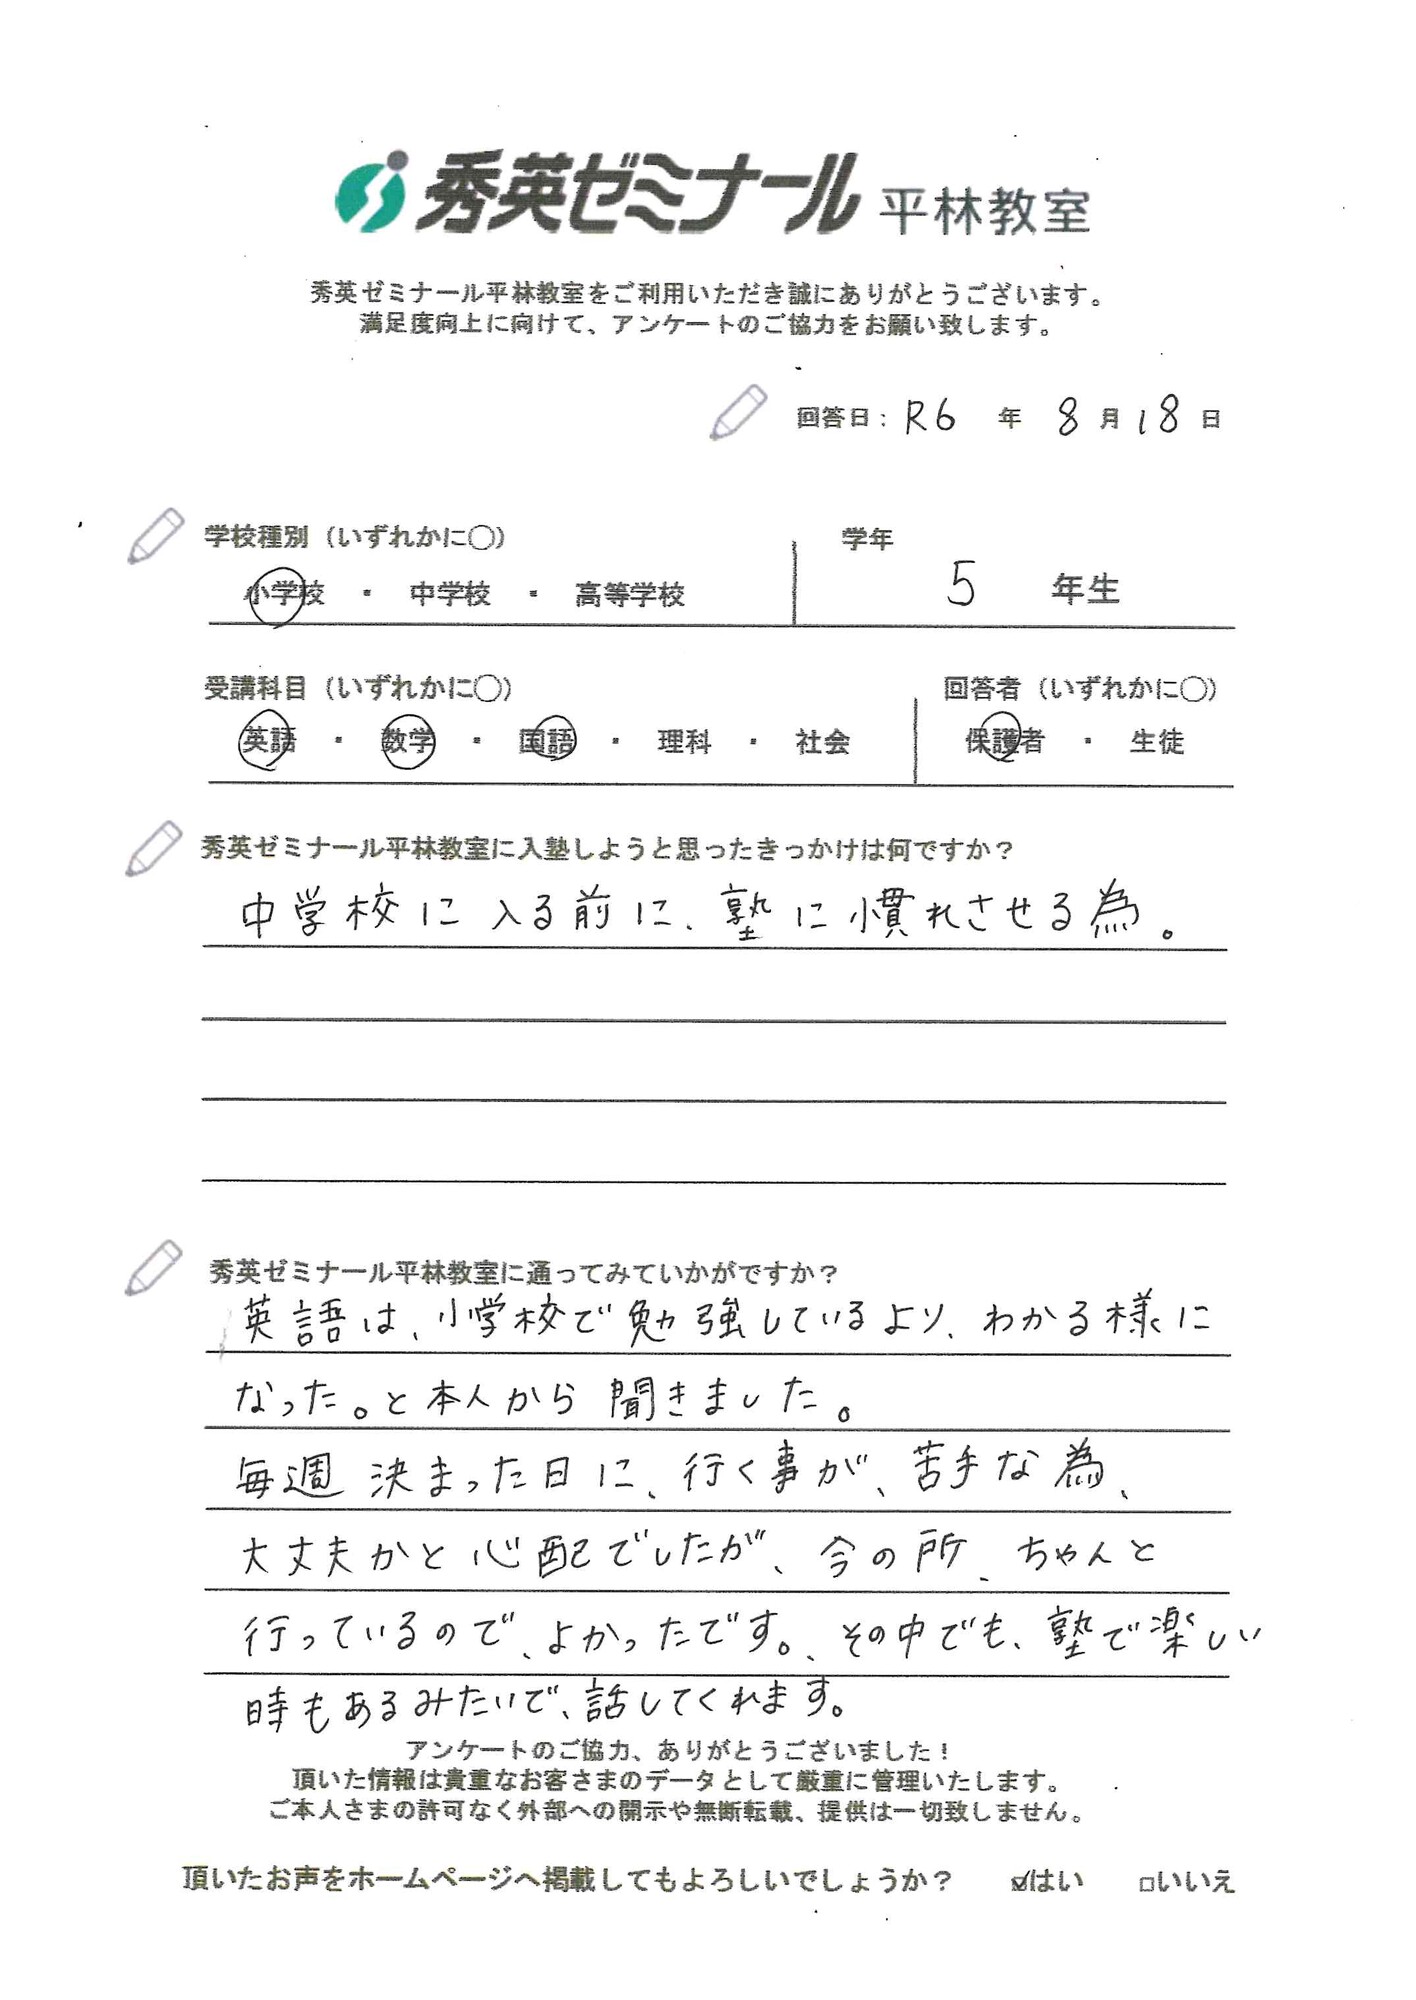 秀英ゼミナール 平林教室
秀英ゼミナール平林教室をご利用いただき誠にありがとうございます。
満足度向上に向けて、アンケートのご協力をお願い致します。
回答日：R6 年 8 月 18 日
学校種別（いずれかに○） 学年
小学校 ・ 中学校 ・ 高等学校 5 年生
受講科目（いずれかに○） 回答者（いずれかに○）
英語 ・ 数学 ・ 国語 ・ 理科 ・ 社会 保護者 ・ 生徒
秀英ゼミナール平林教室に入塾しようと思ったきっかけは何ですか？
中学校に入る前に、塾に慣れさせる為。
秀英ゼミナール平林教室に通ってみていかがですか？
英語は、小学校で勉強しているより、わかる様に
なった。と本人から聞きました。
毎週決まった日に、行く事が、苦手な為、
大丈夫かと心配でしたが、今の所、ちゃんと
行っているので、よかったです。、その中でも、塾で楽しい
時もあるみたいで、話してくれます。
アンケートのご協力、ありがとうございました！
頂いた情報は貴重なお客さまのデータとして厳重に管理いたします。
ご本人さまの許可なく外部への開示や無断転載、提供は一切致しません。
頂いたお声をホームページへ掲載してもよろしいでしょうか？ ☑はい □いいえ